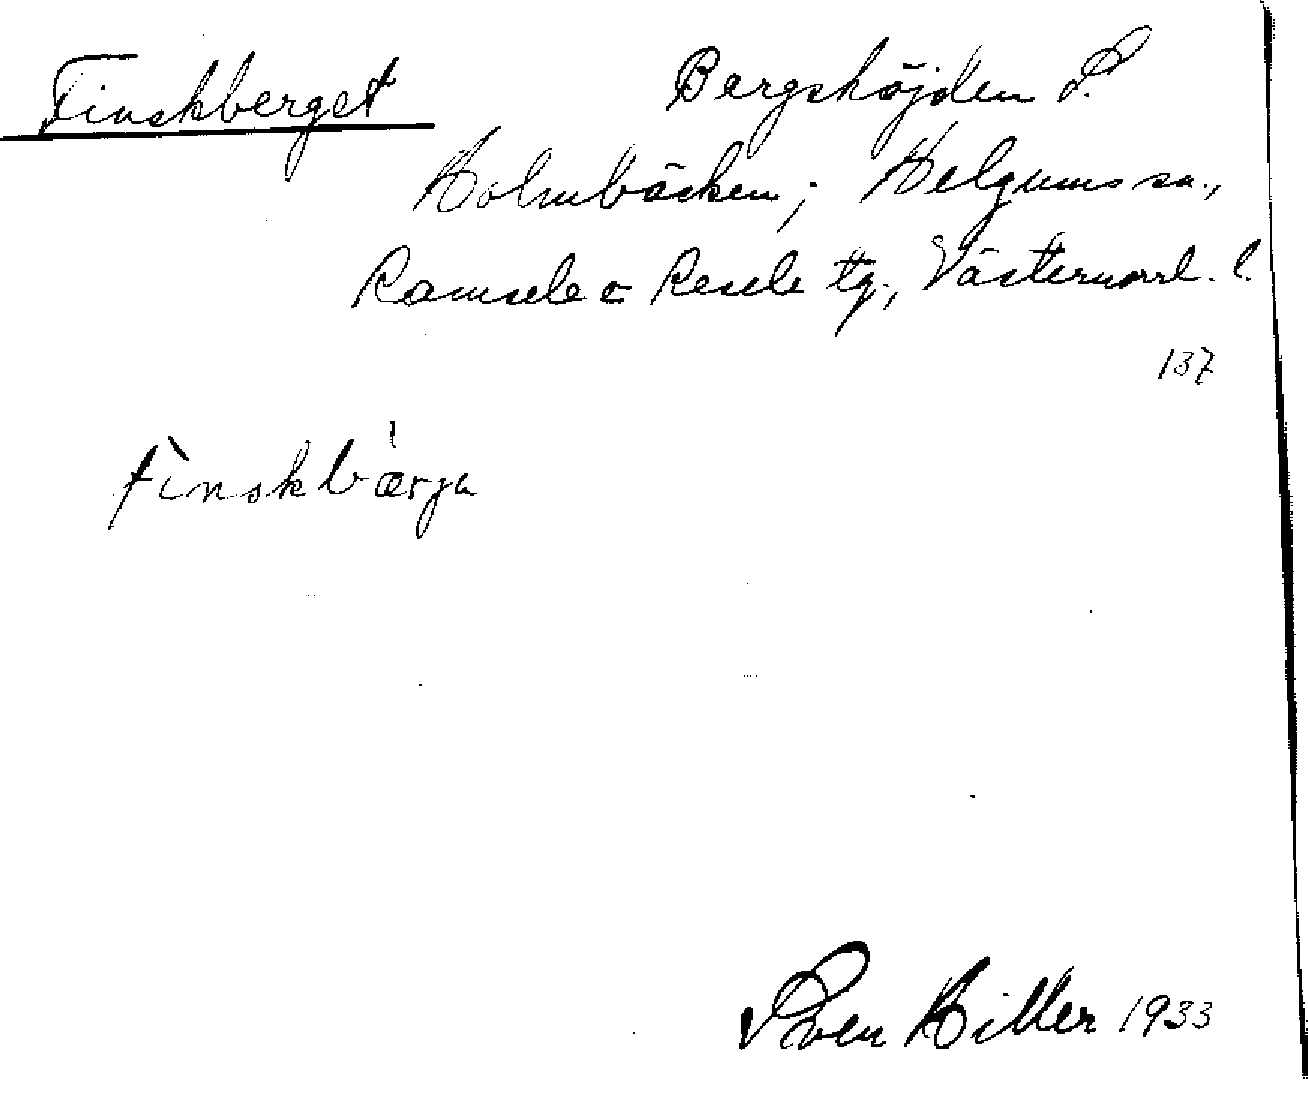 Finskberget
Bergshöjden S.
Holmbäcken; Helgums sn.,
Ramsele o Resele tg., Västernorrl. l.
137
fìnskbǽrja
Sven Hiller 1933